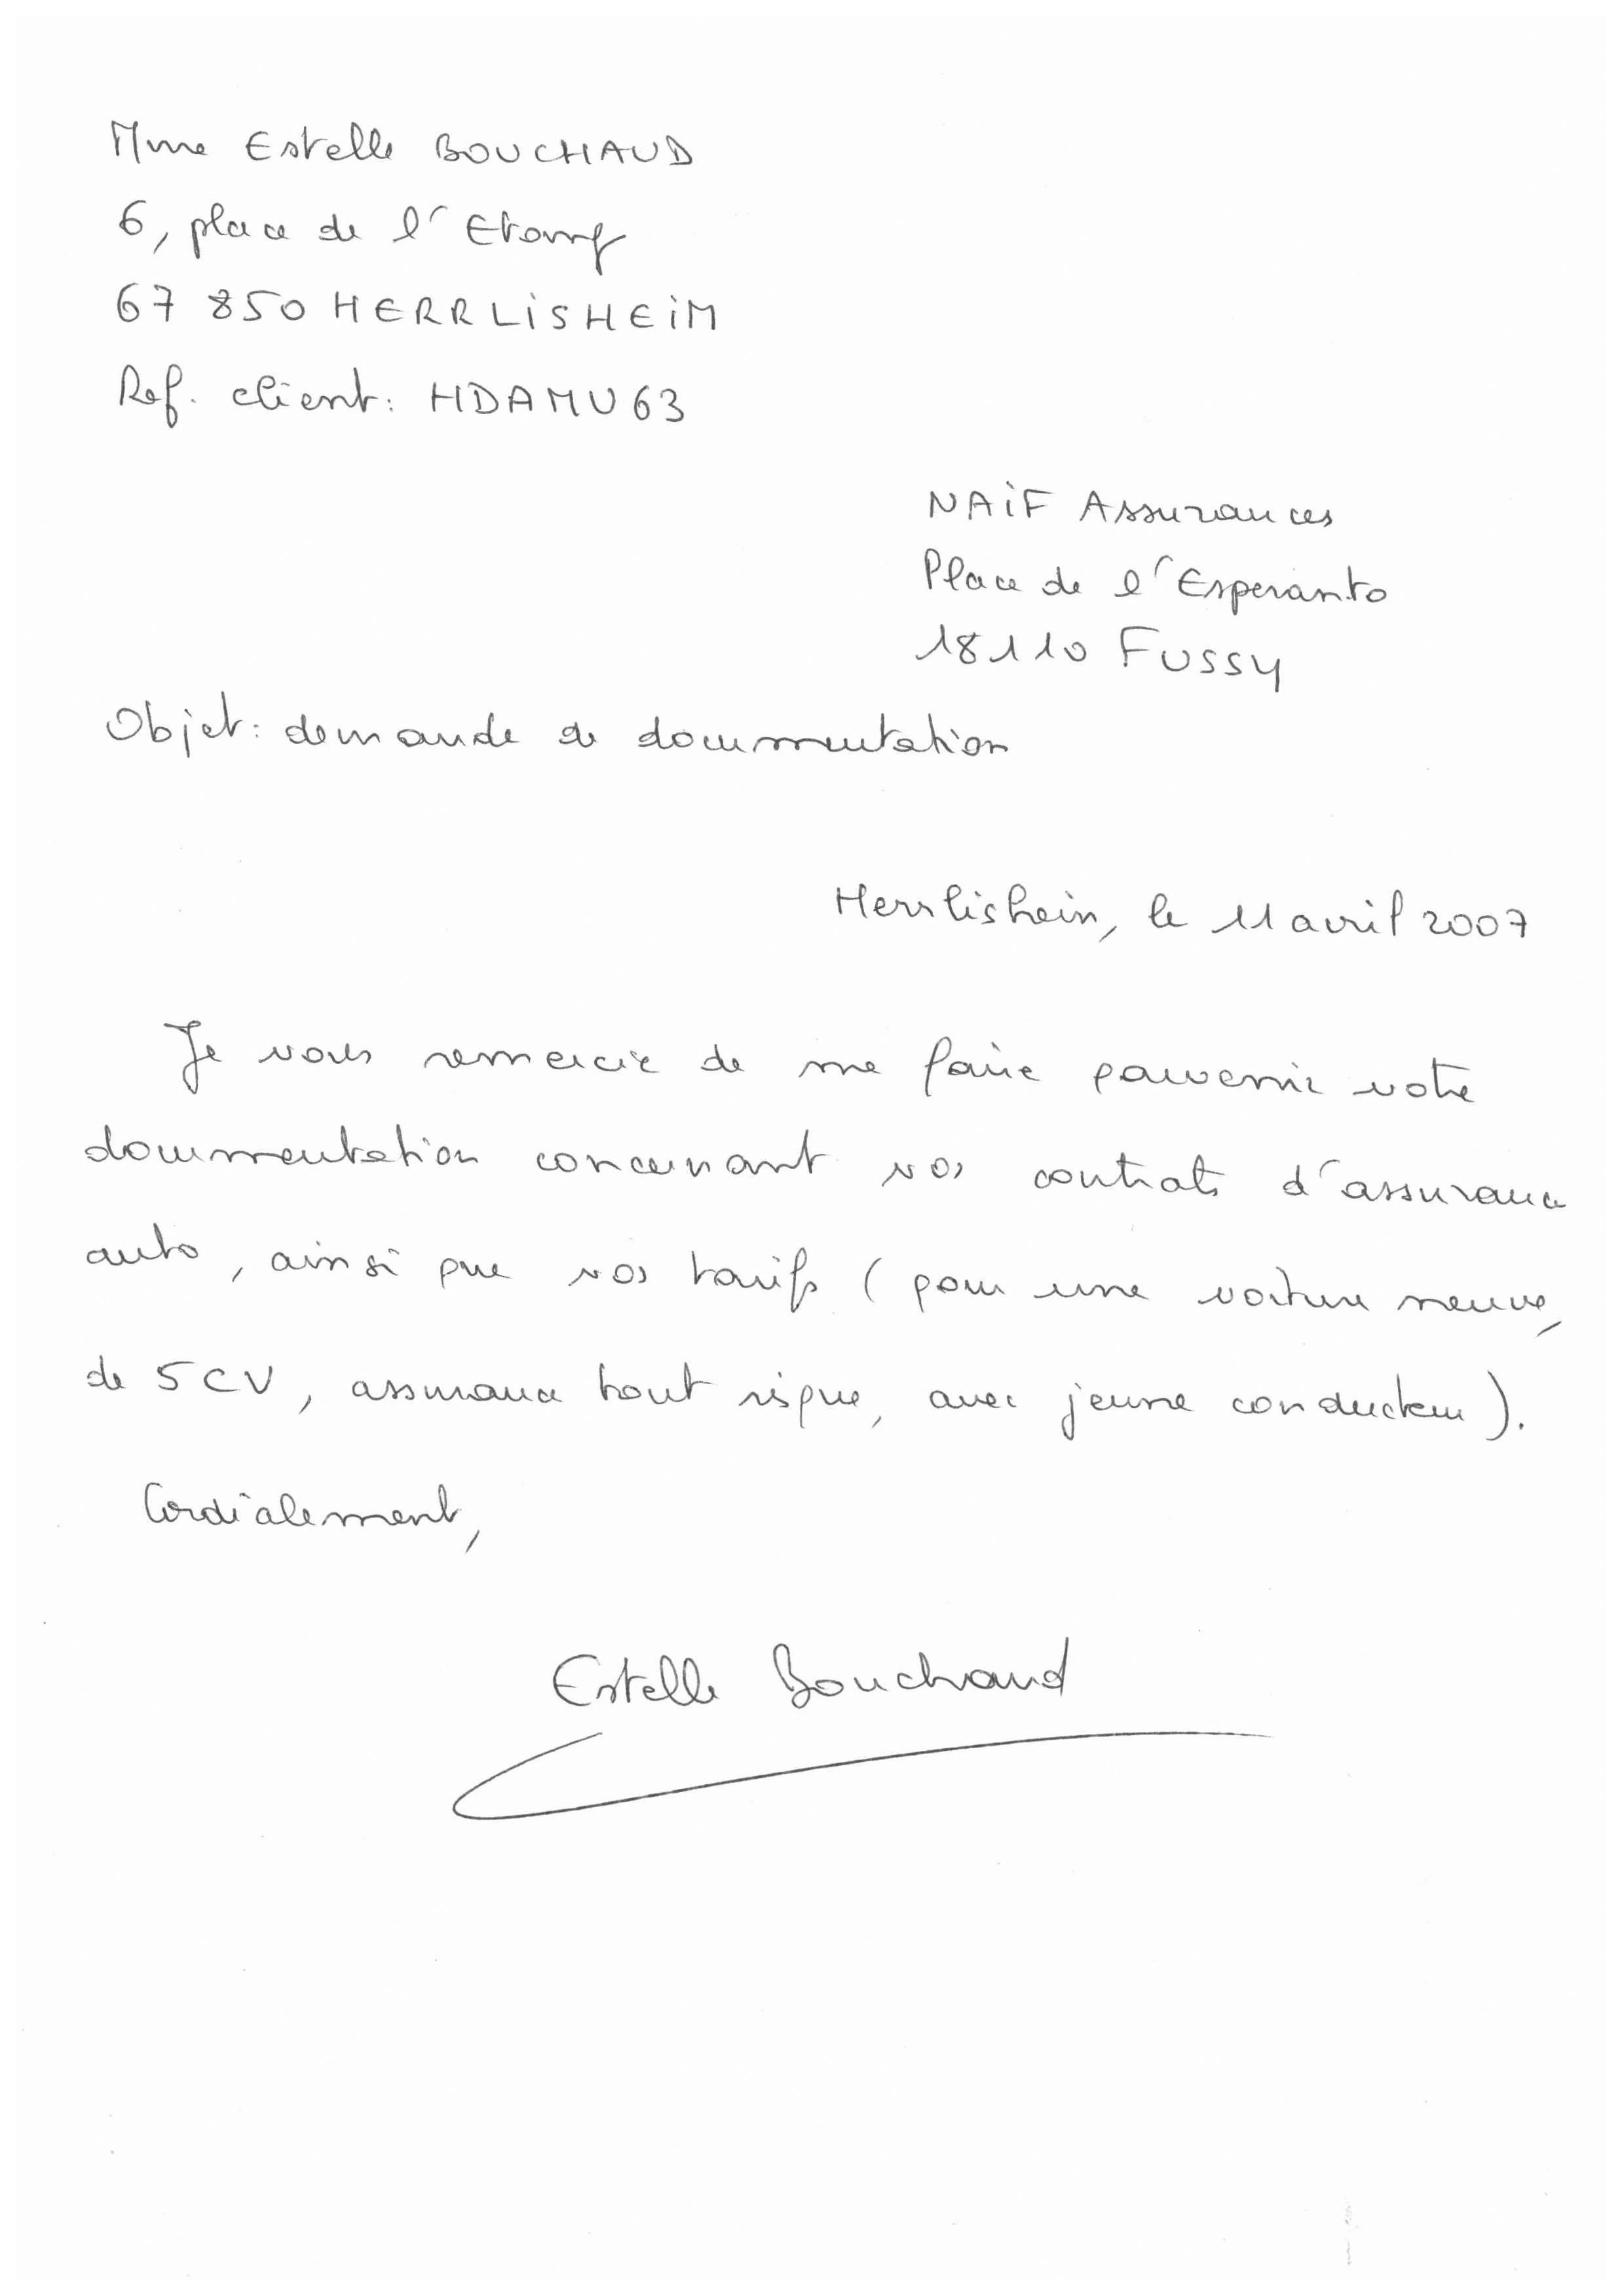 Mme Estelle BOUCHAUD
6, place de l'Etang
67 850 HERRLISHEIM
Ref. client: HDAMU63
NAIF Assurances
Place de l'Esperanto
18110 FUSSY
Objet: demande de documentation
Herrlishein, le 11 avril 2007
Je vous remercie de me faire parvenir votre
documentation concernant vos contrats d'assurance
auto, ainsi que vos tarifs (pour une voiture neuve,
de 5CV, assurance tout risque, avec jeune conducteur).
Cordialement,
Estelle Bouchaud